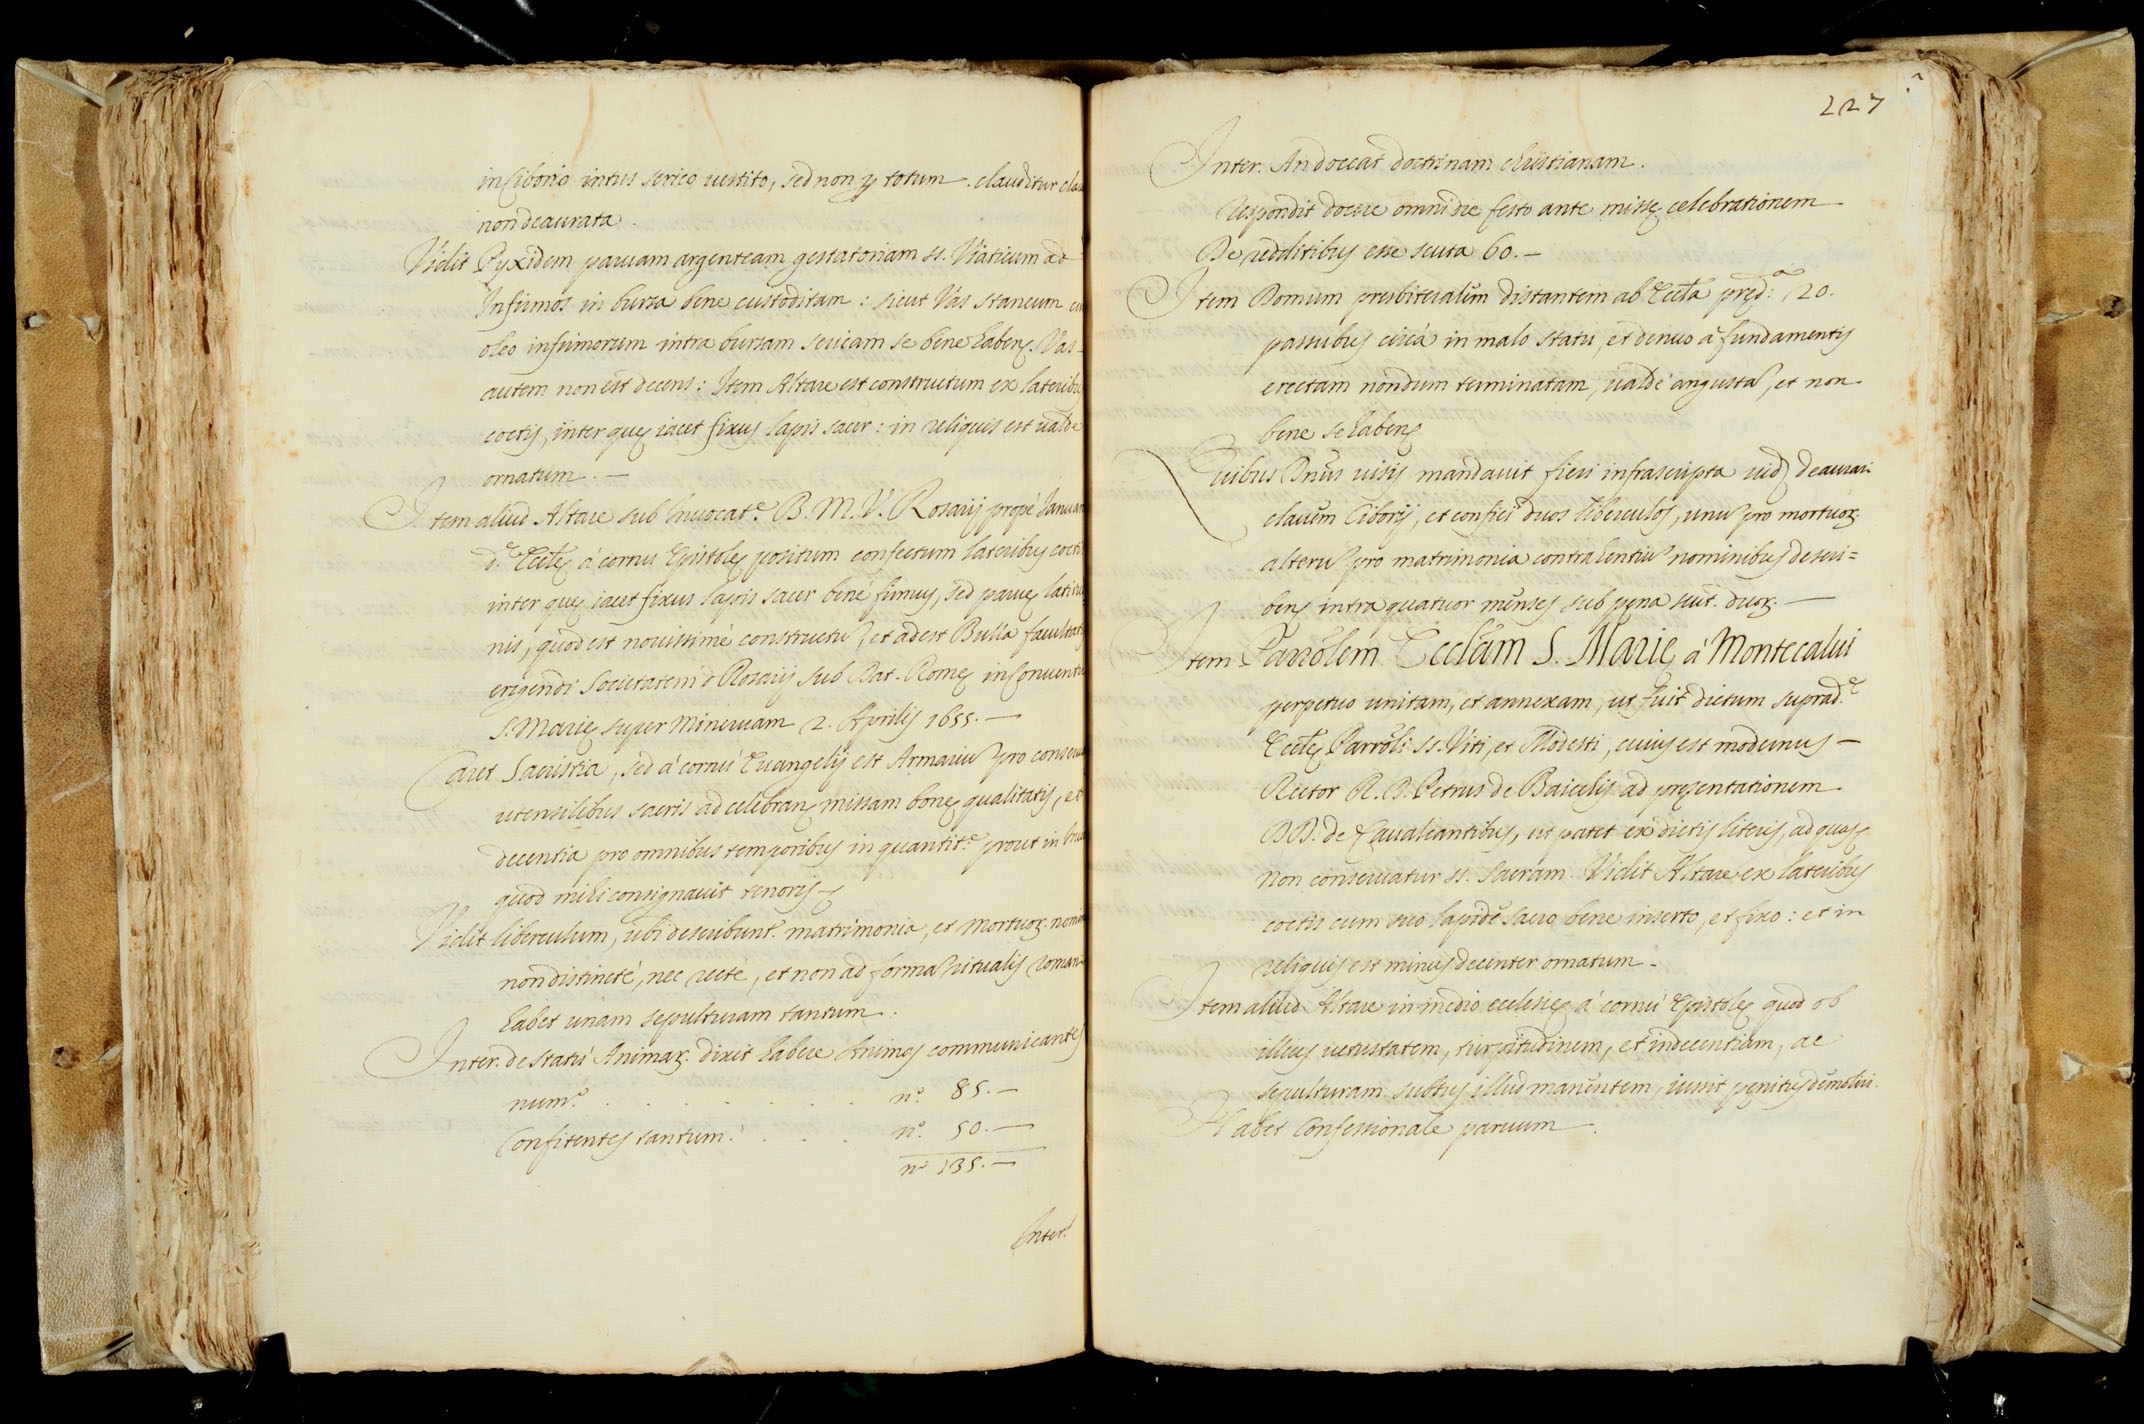 in Ciborio intus serico uestito, sed non p totum. clauditur
non deaurata.
Vidit Pyxidem paruam argenteam gestatoriam ss. Viaticum ad
Infirmos in bursa bene custoditam: sicut Vas staneum
oleo infirmorum intra bursam sericam se bene habens. Vas
autem non est decens: Item Altare est constructum ex lateribus
coctis, inter quę iacet fixus lapis sacer: in reliquis est ualde
ornatum. —
Item aliud Altare sub Inuocat.e B. M. V. Rosarij propè Ianuam
d.ę Eccl̃ę à cornu Epistolę positum confectum lateribus cocti
inter quę iacet fixus lapis sacer benè firmus, sed paruę latitu
nis, quod est nouissimè constructũ, et adest Bulla facultat
erigendi Societatem d Rosarij sub Dat. Romę in Conuentu
S. Marię super Mineruam 2. Aprilis 1655. —
Caret Sacristia, sed à cornù Euangelij est Armariũ pro conseru
utensilibus sacris ad celebran missam bonę qualitatis, et
decentia pro omnibus temporibus in quantit.e prout in
quod mihi consignauit tenoris
Vidit liberculum, ubi describunt.r matrimonia, et mortuor. nomin
non distinctè, nec rectè, et non ad formã ritualis Roman
habet unam sepulturam tantum.
Inter. de statù Animar. dixit habere Animas communicantes
num.o . . . . . . . . n.o 85. —
Confitentes tantum. . . . n.o 50. —
n.o 135. —
Inter.
227
Inter. An doceat doctrinam christianam.
respondit docere omni die festo ante missę celebrationem
De redditibus esse scuta 60. —
Item Domum presbiteralem distantem ab Eccl̃a pręd.a 20.
passibus circà in malo statu, et denuo à fundamentis
erectam nondum terminatam, ualdè angustã, et non
bene se habens
Quibus Dnus uisis mandauit fieri infrascripta uid deaurari
clauem Ciborij, et confici duos liberculos, unũ pro mortuor.
alterũ pro matrimonia contrahentiũ nominibus descri=
bens intra quatuor menses sub pęna scut. duor. —
Item Parrolem Eccl̃am S. Marię à Montecalui
perpetuo unitam, et annexam, ut fuit dictum suprad.ę
Eccl̃ę Parroli ss. Viti, et Modesti, cuius est modernus —
Rector R. D. Petrus de Baiculis ad pręsentationem
DD. de Caualcantibus, ut patet ex dictis literis, ad quas
Non conseruatur ss. Sacram. Vidit Altare ex lateribus
coctis cum suo lapide sacro bene inserto, et fixo: et in
reliquis est minus decenter ornatum.
Item aliud Altare in medio ecclesię à cornù Epistolę quod ob
illius uetustatem, turpitudinem, et indecentiam, ac
sepulturam subtus illud manentem, iussit penitus demoliri.
Habet Confessionale paruum.